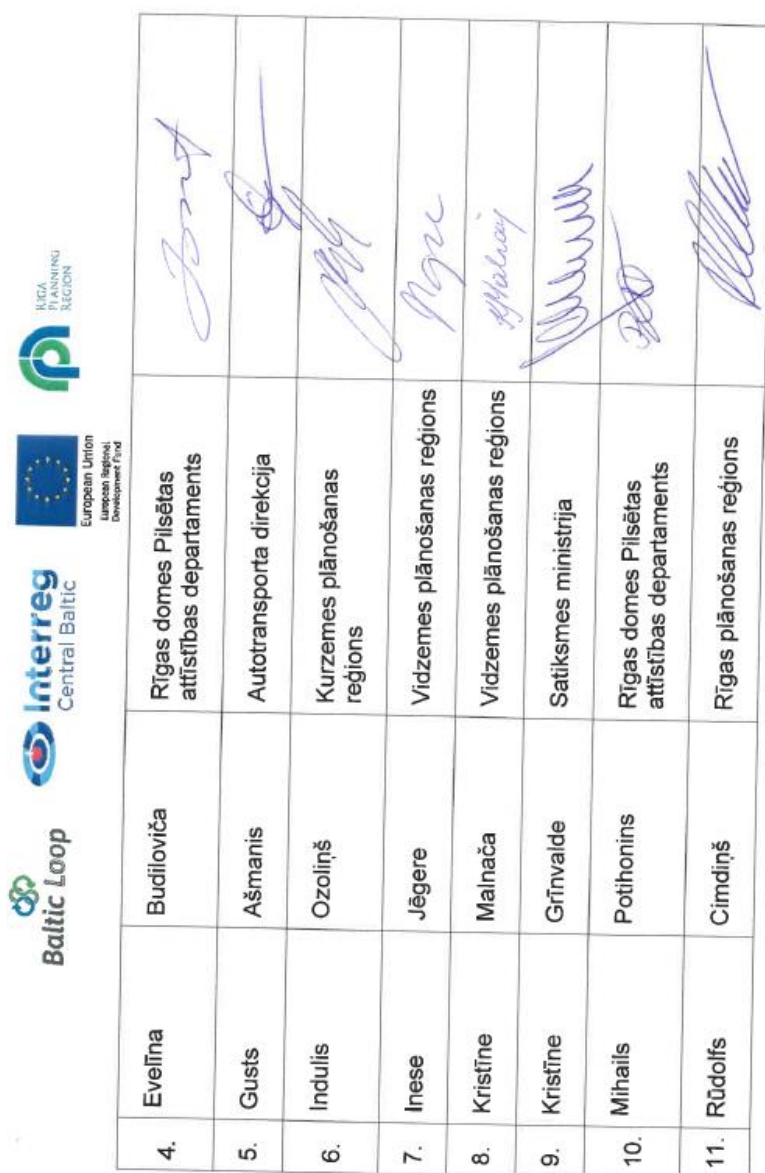 Baltic Loop
Interreg
Central Baltic
European Union
European Regional
Development Fund
RIGA
PLANNING
REGION
4. Evelīna Budiloviča Rīgas domes Pilsētas
attīstības departaments
5. Gusts Ašmanis Autotransporta direkcija
6. Indulis Ozoliņš Kurzemes plānošanas
reģions
7. Inese Jēgere Vidzemes plānošanas reģions
8. Kristīne Malnača Vidzemes plānošanas reģions
9. Kristīne Grīnvalde Satiksmes ministrija
10. Mihails Potihonins Rīgas domes Pilsētas
attīstības departaments
11. Rūdolfs Cimdiņš Rīgas plānošanas reģions